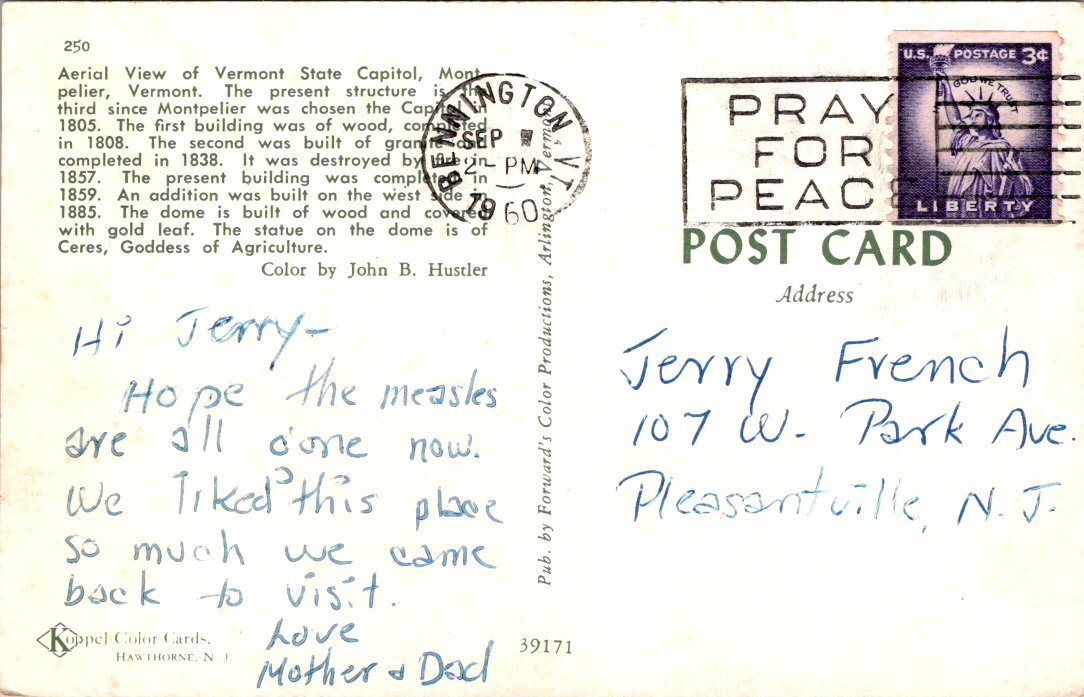 250
Aerial View of Vermont State Capitol, Mont
pelier, Vermont. The present structure is the
third since Montpelier was chosen the Capitol in
1805. The first building was of wood, completed
in 1808. The second was built of granite
completed in 1838. It was destroyed by fire in
1857. The present building was completed in
1859. An addition was built on the west side in
1885. The dome is built of wood and covered
with gold leaf. The statue on the dome is of
Ceres, Goddess of Agriculture.
Color by John B. Hustler
BENNINGTON, VT.
SEP
2 - PM
1960
PRAY
FOR
PEACE
U.S. POSTAGE 3¢
IN GOD WE TRUST
LIBERTY
POST CARD
Address
Hi Jerry-
Hope the measles
are all done now.
We liked this place
so much we came
back to visit.
Love
Mother & Dad
Jerry French
107 W. Park Ave.
Pleasantville, N. J.
Pub. by Forward's Color Productions, Arlington, Vermont
Koppel Color Cards,
HAWTHORNE, N. J.
39171